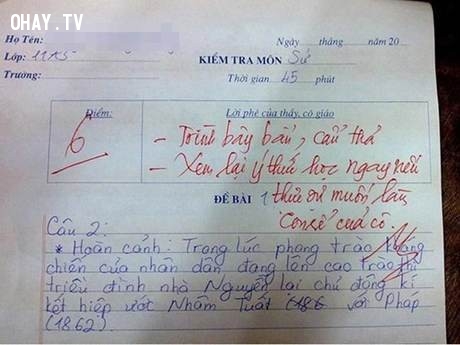 OHAY.TV
Họ Tên:
Ngày tháng năm 20
Lớp: 11A5
KIỂM TRA MÔN Sử
Trường:
Thời gian 45 phút
Điểm:
Lời phê của thầy, cô giáo
6
- Trình bày bẩn, cẩu thả
- Xem lại ý thức học ngay nếu
thực sự muốn làm
"Con rể" của cô.
ĐỀ BÀI 1
Câu 2:
* Hoàn cảnh: Trong lúc phong trào kháng
chiến của nhân dân đang lên cao trào thì
triều đình nhà Nguyễn lại chủ động kí
kết hiệp ước Nhâm Tuất với Pháp
(1862)